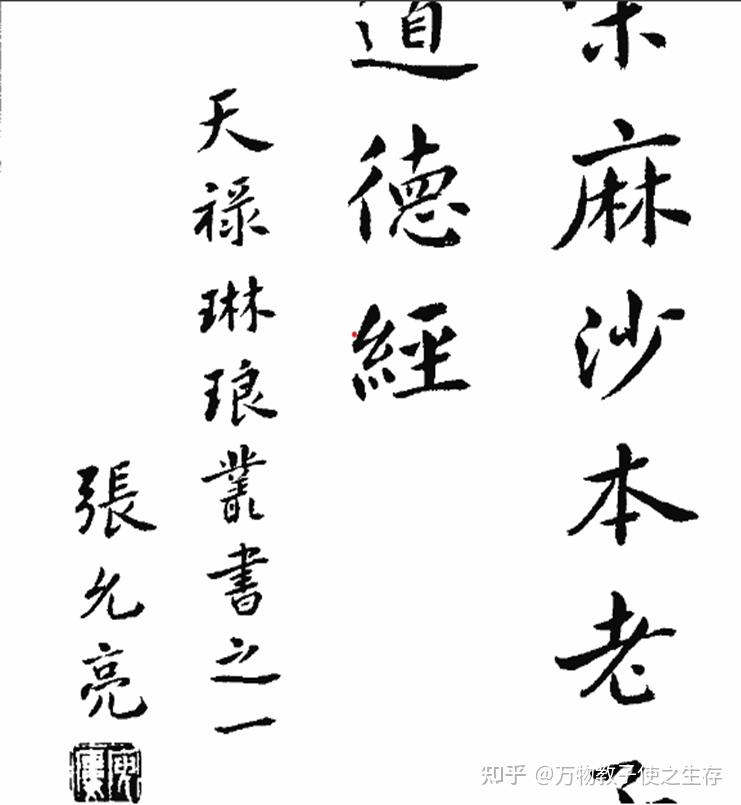 宋麻沙本老子
道德經
天禄琳琅叢書之一
張允亮
知乎 @万物教子使之生存